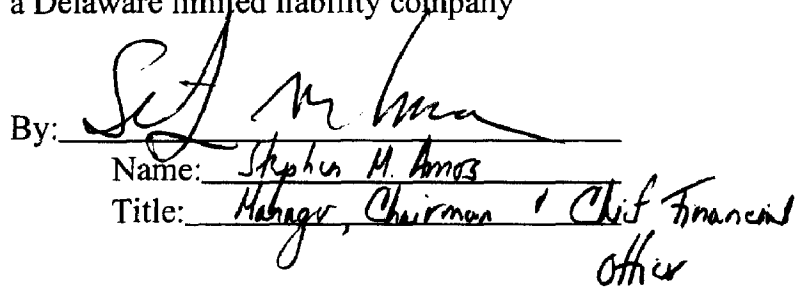 a Delaware limited liability company
By:
Name: Stephen M. Amos
Title: Manager, Chairman & Chief Financial
Officer